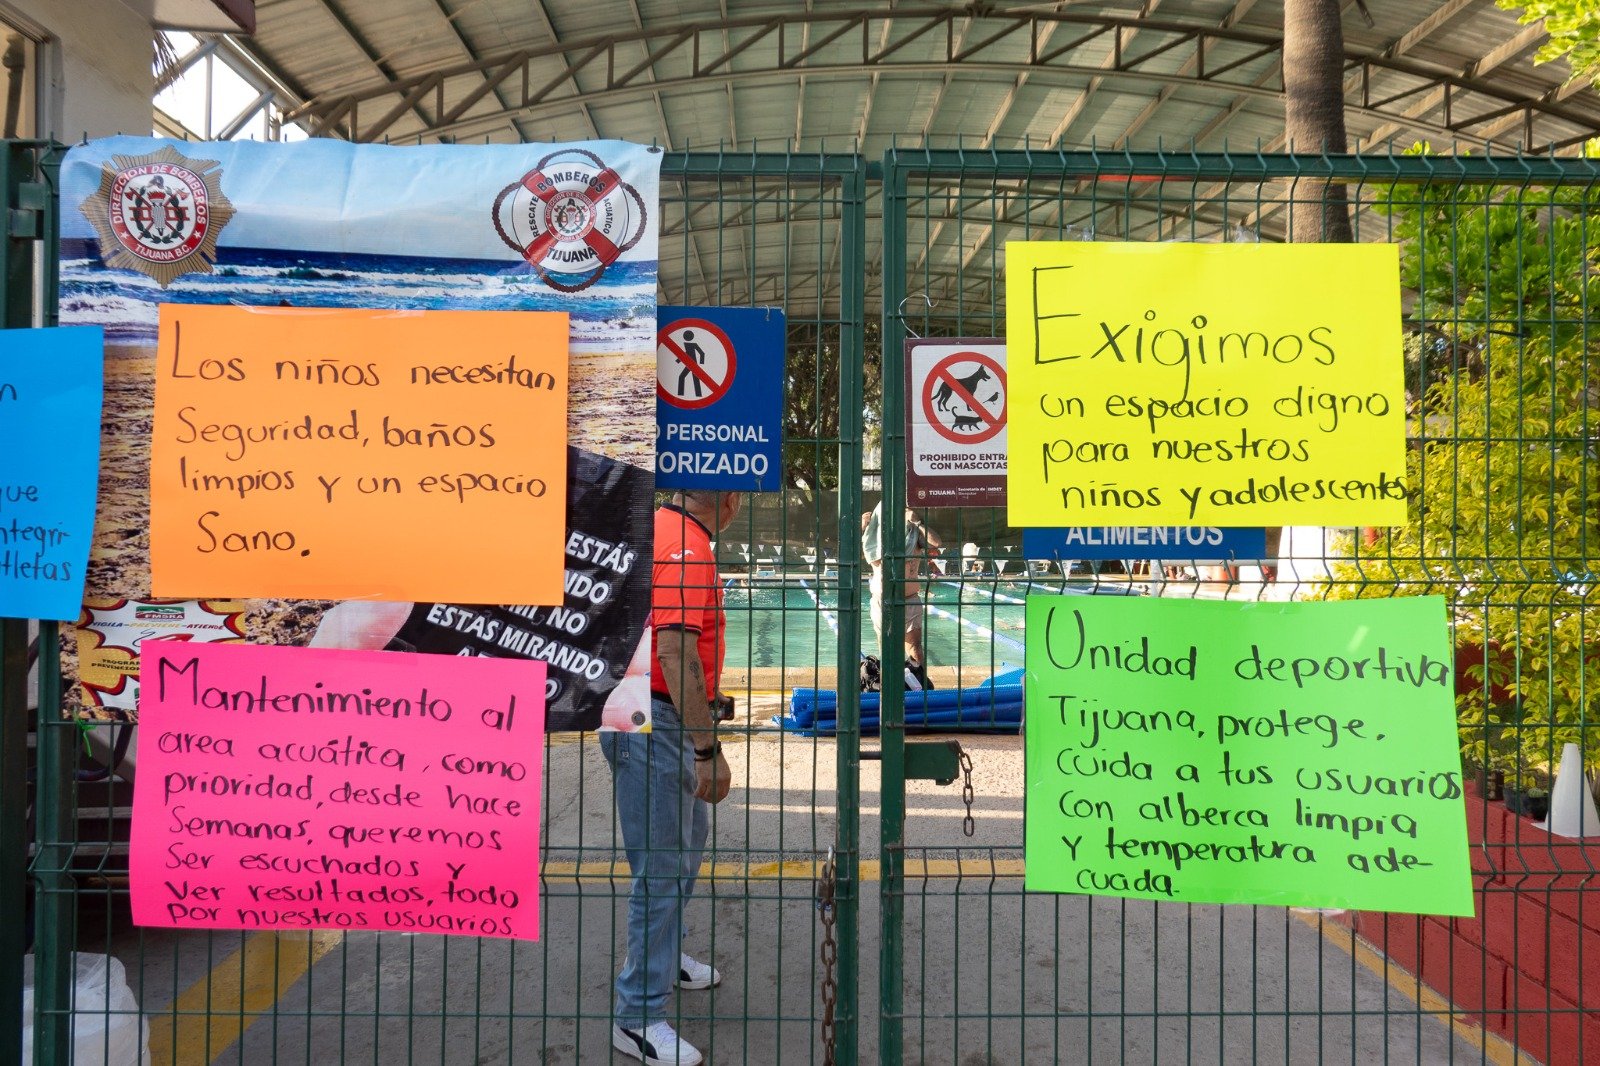 DIRECCIÓN DE BOMBEROS
TIJUANA B.C.
BOMBEROS
RESCATE
ACUATICO
TIJUANA
que
ntegri-
tletas
Los niños necesitan
Seguridad, baños
limpios y un espacio
Sano.
ESTÁS
NDO
MI, NO
ESTÁS MIRANDO
FMSRA
VIGILA-PREVIENE-ATIENDE
Mantenimiento al
area acuática, como
prioridad, desde hace
Semanas, queremos
Ser escuchados y
Ver resultados, todo
por nuestros usuarios.
O PERSONAL
TORIZADO
PROHIBIDO ENTRA
CON MASCOTAS
TIJUANA
Exigimos
un espacio digno
para nuestros
niños y adolescentes
ALIMENTOS
Unidad deportiva
Tijuana, protege,
cuida a tus usuarios
con alberca limpia
y temperatura ade-
cuada.